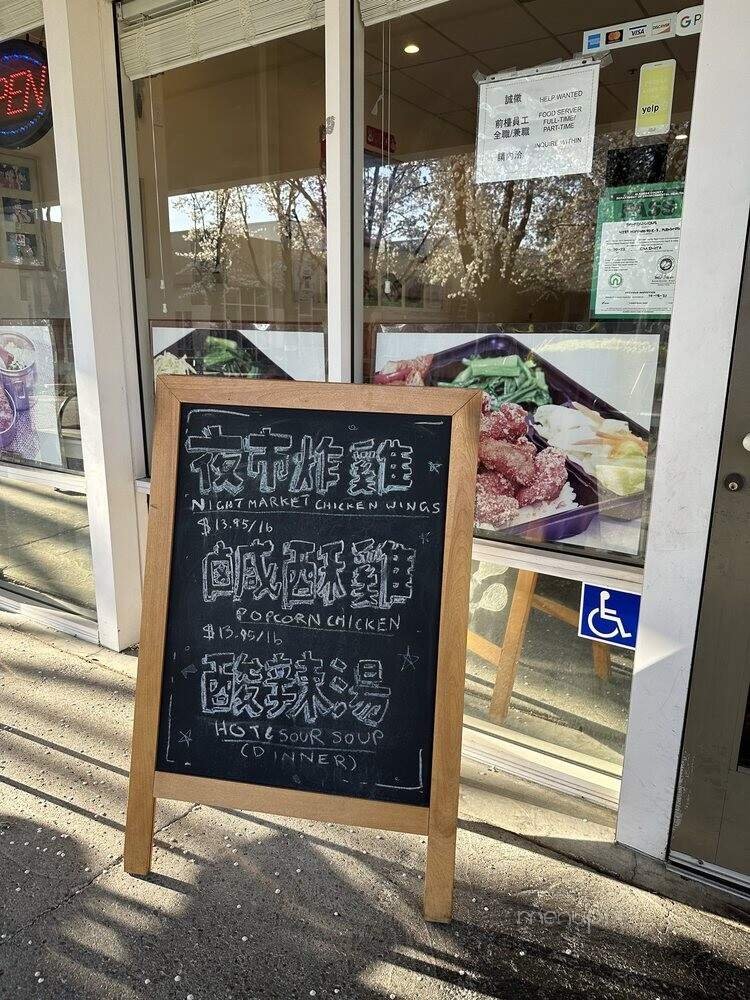 OPEN
誠徵 HELP WANTED
前檯員工 FOOD SERVER
全職/兼職 FULL-TIME/
PART-TIME
請內洽 INQUIRE WITHIN
VISA
DISCOVER
G P
yelp
PASS
夜市炸雞
NIGHT MARKET CHICKEN WINGS
$13.95/lb
鹹酥雞
POPCORN CHICKEN
$13.95/lb
酸辣湯
HOT & SOUR SOUP
(DINNER)